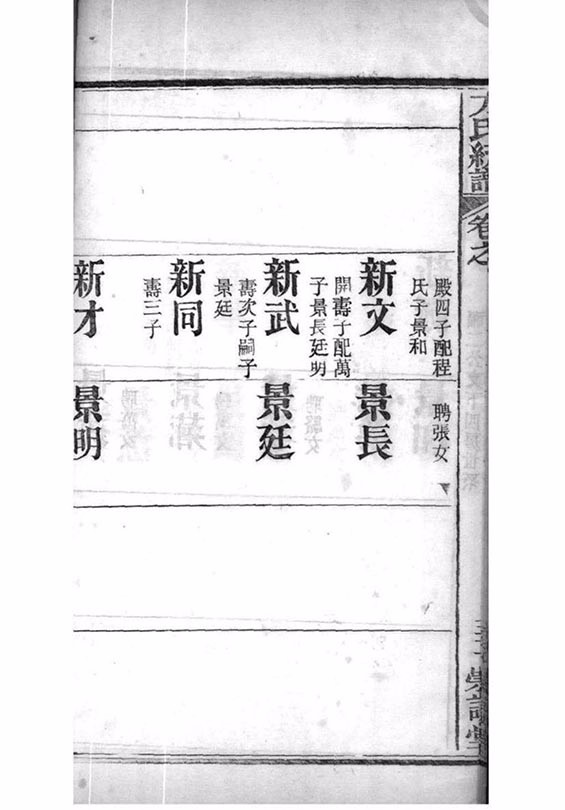 卷之
殿四子配程
氏子景和
新文
開壽子配萬
子景長廷明
新武
壽次子嗣子
景廷
新同
壽三子
新才
聘張女
景長
景廷
景明